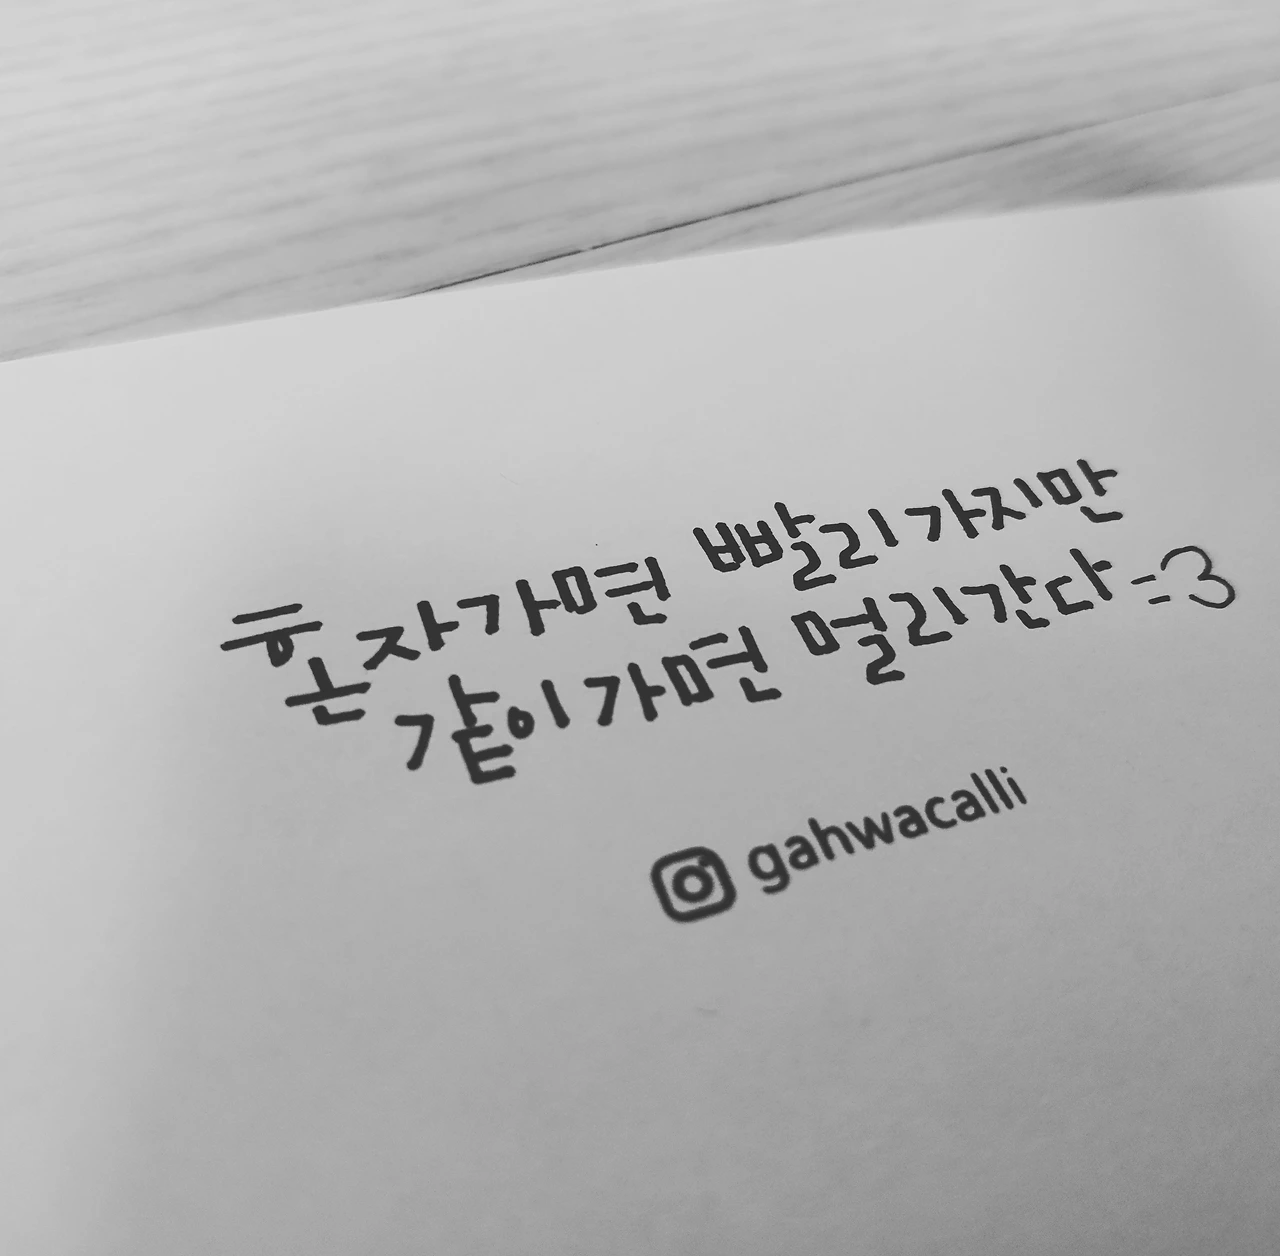 혼자가면 빨리가지만
같이가면 멀리간다=3
gahwacalli